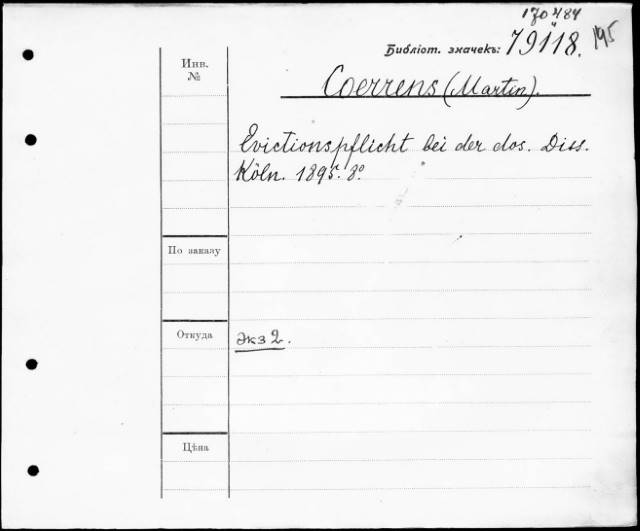 170484
Библіот. значекъ: 79118. 195
Инв.
№
Coerrens (Martin).
Evictionspflicht bei der dos. Diss.
Köln. 1895. 8°
По заказу
Откуда
экз 2.
Цѣна